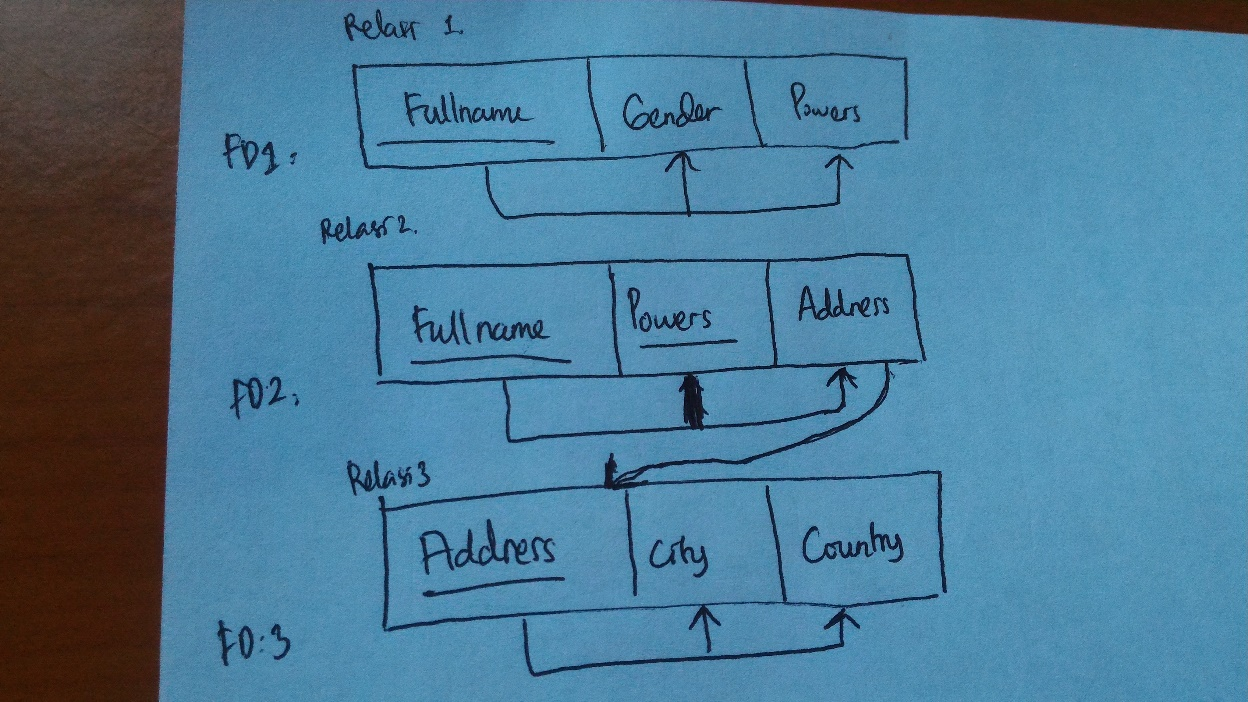 Relasi 1.
Fullname Gender Powers
FD1:
Relasi 2.
Fullname Powers Address
FD2:
Relasi 3
Address City Country
FD:3